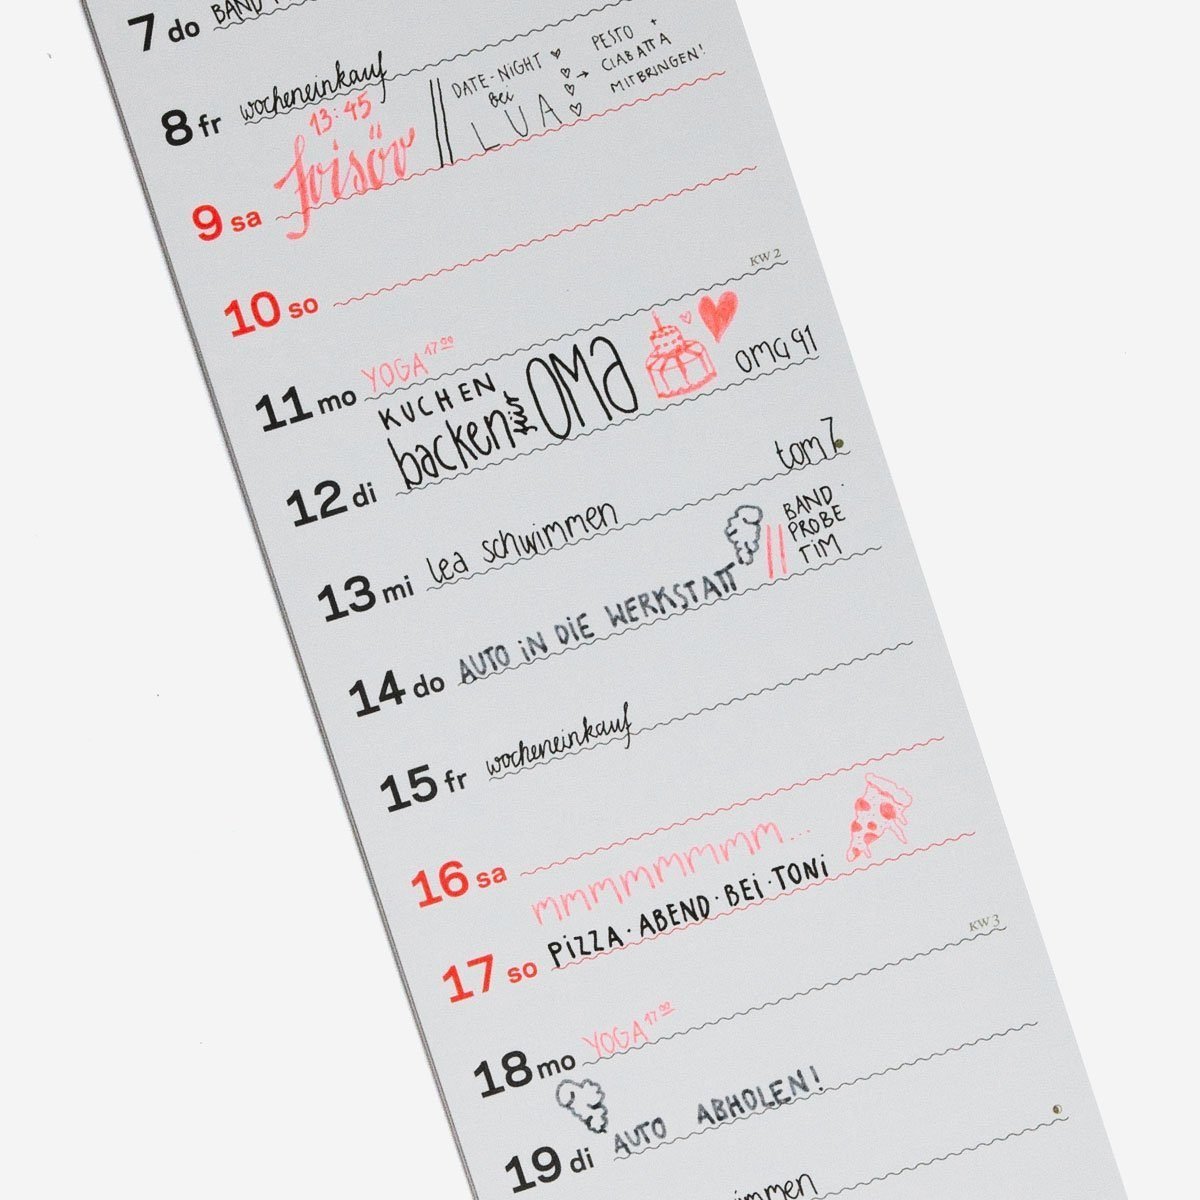 7 do BAND
8 fr wocheneinkauf
9 sa 13:45 frisör // DATE-NIGHT bei LUA → PESTO + CIABATTA MITBRINGEN!
10 so
KW 2
11 mo YOGA 17⁰⁰
12 di KUCHEN backen für OMA oma 91
13 mi lea schwimmen tom 7
14 do AUTO iN DiE WERKSTATT // BAND · PROBE TiM
15 fr wocheneinkauf
16 sa
17 so mmmmmmmm... PiZZA · ABEND · BEi · TONi
KW 3
18 mo YOGA 17⁰⁰
19 di AUTO ABHOLEN!
mmen